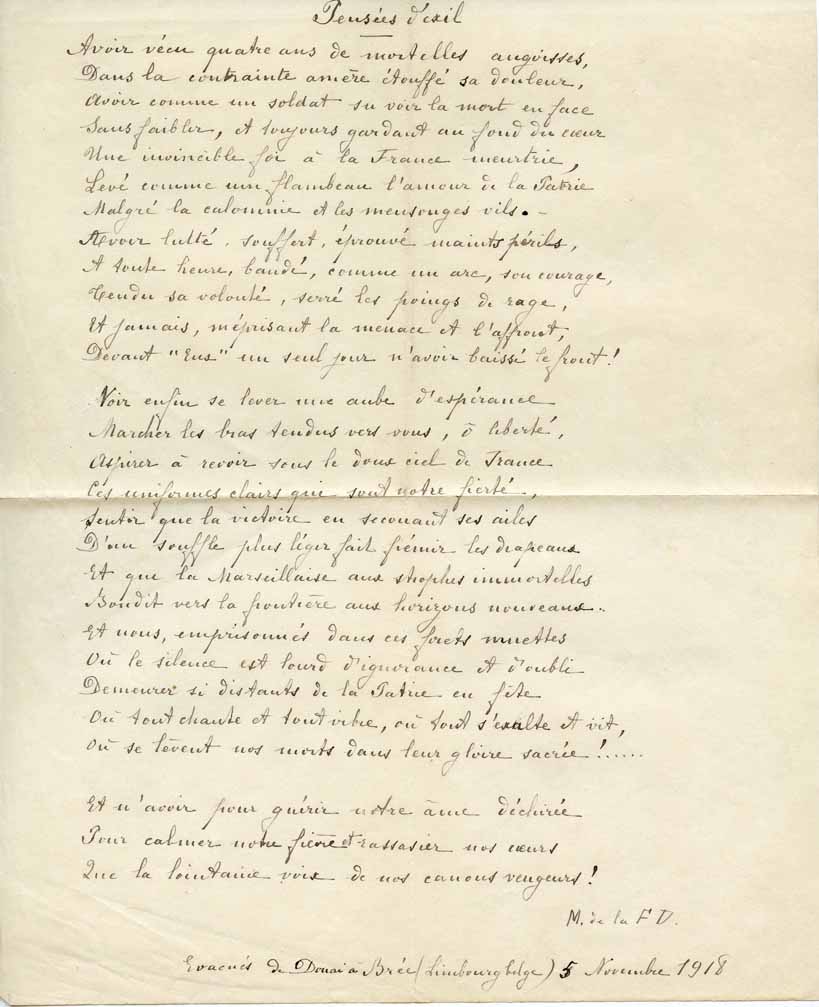 Pensées d'exil
Avoir vécu quatre ans de mortelles angoisses,
Dans la contrainte amère étouffé sa douleur,
Avoir comme un soldat su voir la mort en face
Sans faiblir, et toujours gardant au fond du cœur
Une invincible foi à la France meurtrie,
Levé comme un flambeau l'amour de la Patrie
Malgré la calomnie et les mensonges vils. -
Avoir lutté, souffert, éprouvé maints périls,
A toute heure, bandé, comme un arc, son courage,
Tendu sa volonté, serré les poings de rage,
Et jamais, méprisant la menace et l'affront,
Devant "Eux" un seul jour n'avoir baissé le front!
Voir enfin se lever une aube d'espérance
Marcher les bras tendus vers vous, ô liberté,
Aspirer à revoir sous le doux ciel de France
Ces uniformes clairs qui sont notre fierté,
Sentir que la victoire en secouant ses ailes
D'un souffle plus léger fait frémir les drapeaux
Et que la Marseillaise aux strophes immortelles
Bondit vers la frontière aux horizons nouveaux..
Et nous, emprisonnés dans ces forêts muettes
Où le silence est lourd d'ignorance et d'oubli
Demeurer si distants de la Patrie en fête
Où tout chante et tout vibre, où tout s'exalte et vit,
Où se lèvent nos morts dans leur gloire sacrée!......
Et n'avoir pour guérir notre âme déchirée
Pour calmer notre fièvre et rassasier nos cœurs
Que la lointaine voix de nos canons vengeurs!
M. de la F D.
Evacués de Douai à Brée (Limbourg belge) 5 Novembre 1918